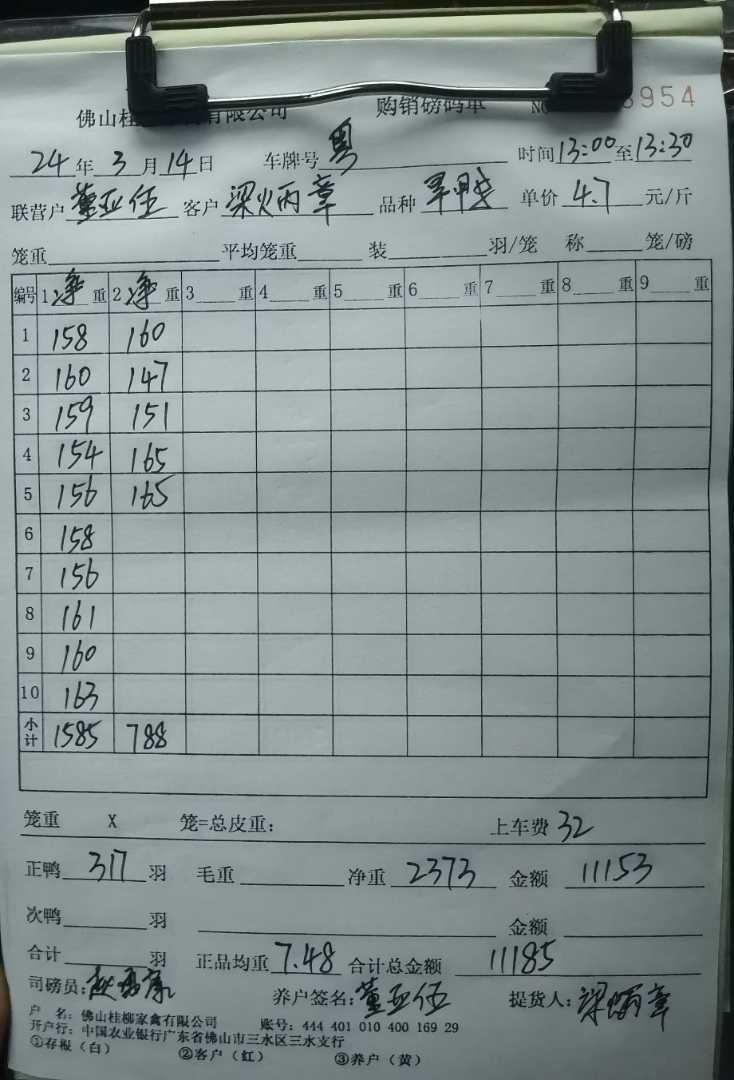 佛山桂 有限公司 购销磅码单 NO 8954
24年3月14日 车牌号 粤 时间13:00至13:30
联营户 董亚伍 客户 梁火丙章 品种 单价 4.7 元/斤
笼重 平均笼重 装 羽/笼 称 笼/磅
编号 1净重 2净重 3 重 4 重 5 重 6 重 7 重 8 重 9 重
1 158 160
2 160 147
3 159 151
4 154 165
5 156 165
6 158
7 156
8 161
9 160
10 163
小计 1585 788
笼重 X 笼=总皮重: 上车费 32
正鸭 317 羽 毛重 净重 2373 金额 11153
次鸭 羽 金额
合计 羽 正品均重 7.48 合计总金额 11185
司磅员: 养户签名: 董亚伍 提货人: 梁炳章
户 名: 佛山桂柳家禽有限公司 账号: 444 401 010 400 169 29
开户行: 中国农业银行广东省佛山市三水区三水支行
①存根(白) ②客户(红) ③养户(黄)